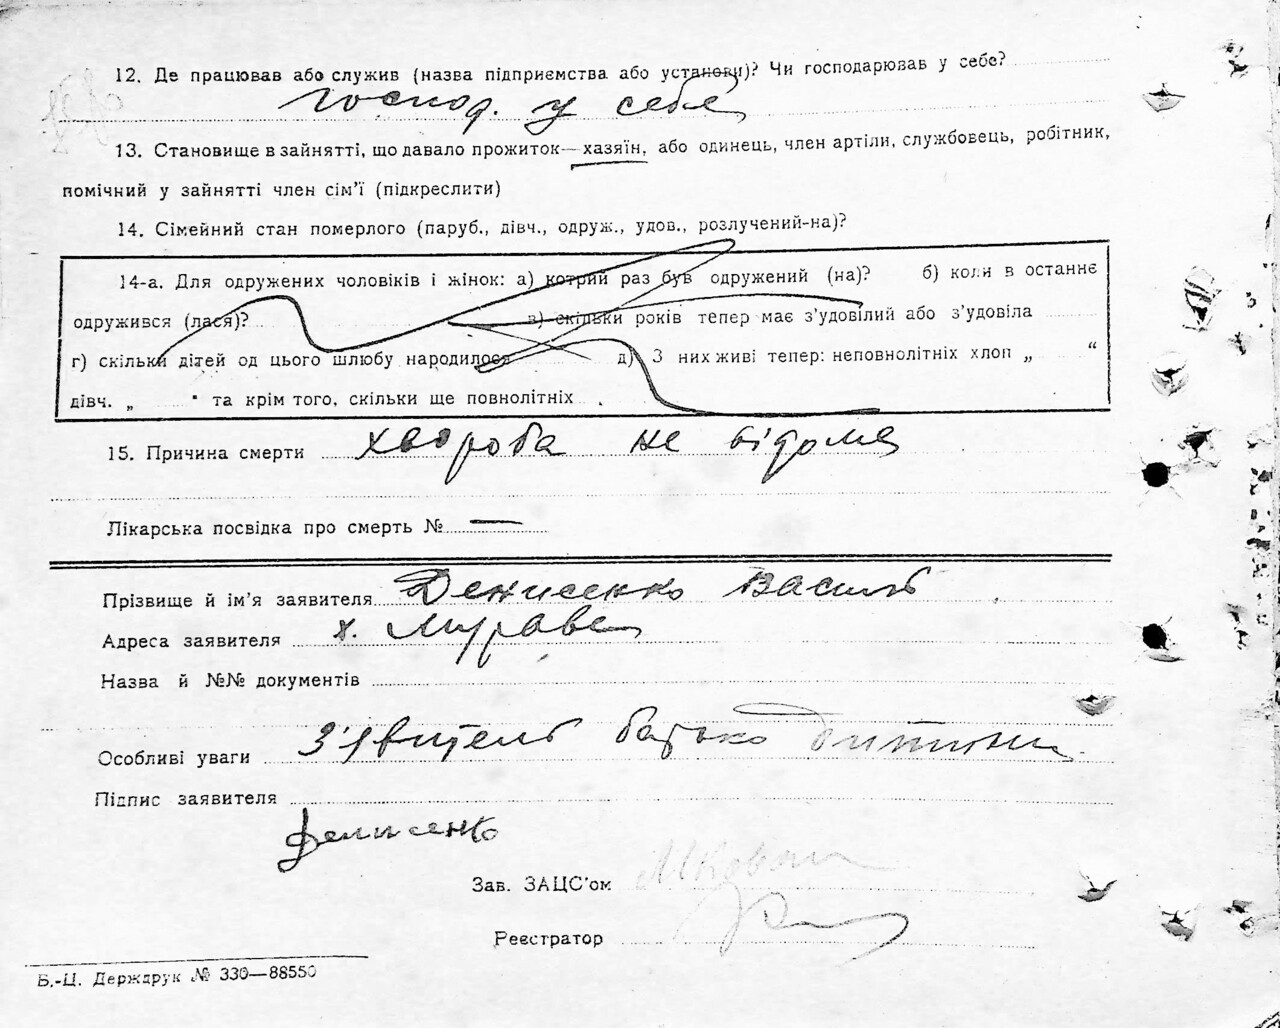 12. Де працював або служив (назва підприємства або установи)? Чи господарював у себе?
господ. у себе
13. Становище в зайнятті, що давало прожиток—хазяїн, або одинець, член артіли, службовець, робітник,
помічний у зайнятті член сім'ї (підкреслити)
14. Сімейний стан померлого (паруб., дівч., одруж., удов., розлучений-на)?
14-а. Для одружених чоловіків і жінок: а) котрий раз був одружений (на)? б) коли в останнє
одружився (лася)? в) скільки років тепер має з'удовілий або з'удовіла
г) скільки дітей од цього шлюбу народилося д) З них живі тепер: неповнолітніх хлоп „ “
дівч. „ " та крім того, скільки ще повнолітніх .
15. Причина смерти хвороба не відома
Лікарська посвідка про смерть № —
Прізвище й ім'я заявителя Денисенко Василь
Адреса заявителя х. Мураве
Назва й №№ документів
Особливі уваги З'явитель батько дитини
Підпис заявителя
Денисенко
Зав. ЗАЦС'ом
Реєстратор
Б.-Ц. Держдрук № 330—88550